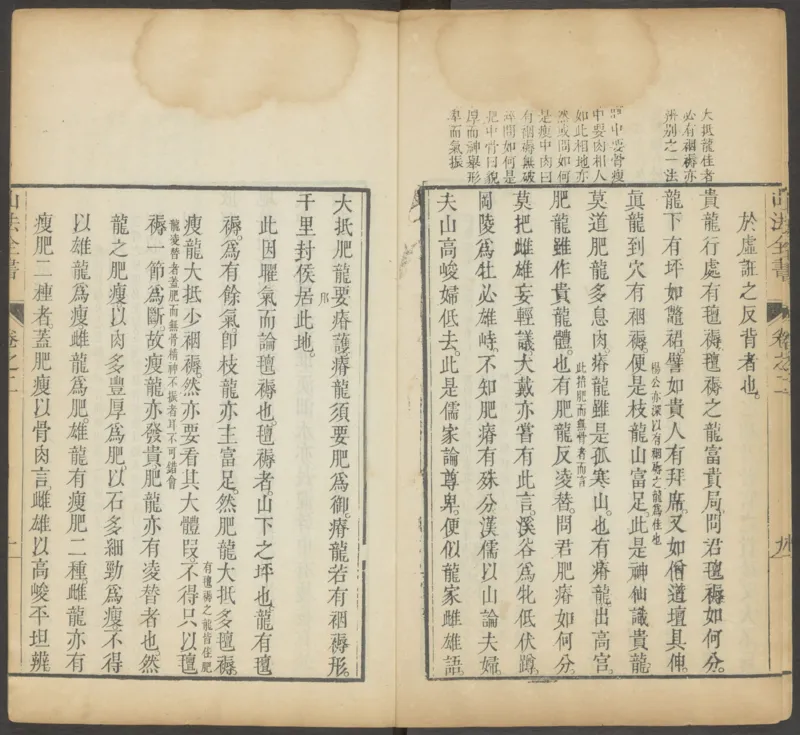 大抵龍佳者
必有裀褥亦
辨别之一法
肥中要骨瘦
中要肉相人
如此相地亦
然或問如何
是瘦中肉曰
有裀褥無破
碎問如何是
肥中骨曰貌
厚而神舉形
卑而氣振
於虛誑之反背者也。
貴龍行處有氊褥氊褥之龍富貴局。問君氊褥如何分。
龍下有坪如鼈裙。譬如貴人有拜席。又如僧道壇具伸。
眞龍到穴有裀褥。便是枝龍山富足。此是神仙識貴龍
楊公亦深以有裀褥之龍爲佳也
莫道肥龍多息肉。瘠龍雖是孤寒山。也有瘠龍出高官。
肥龍雖作貴龍體。也有肥龍反凌替。問君肥瘠如何分。
此指肥而無骨者而言
莫把雌雄妄輕議。大戴亦嘗有此言。溪谷爲牝低伏蹲
岡陵爲牡必雄峙。不知肥瘠有殊分。漢儒以山論夫婦。
夫山高峻婦低去。此是儒家論尊卑。便似龍家雌雄語。
山法全書
卷之二
九
大抵肥龍要瘠護瘠龍須要肥爲御。瘠龍若有裀褥形。
千里封侯居此地。
郎
此因臞氣而論氊褥也。氊褥者。山下之坪也。龍有氊
褥。爲有餘氣卽枝龍亦主富足。然肥龍大抵多氊褥。
有氊褥之龍皆佳肥
瘦龍大抵少裀褥。然亦要看其大體段。不得只以氊
龍凌替者蓋肥而無骨精神不振者耳不可錯會
褥一節爲斷。故瘦龍亦發貴肥龍亦有凌替者也。然
龍之肥瘦。以肉多豐厚爲肥。以石多細勁爲瘦。不得
以雄龍爲瘦雌龍爲肥。雄龍有瘦肥二種。雌龍亦有
瘦肥二種者。蓋肥瘦以骨肉言。雌雄以高峻平坦辨
山法全書
卷之二